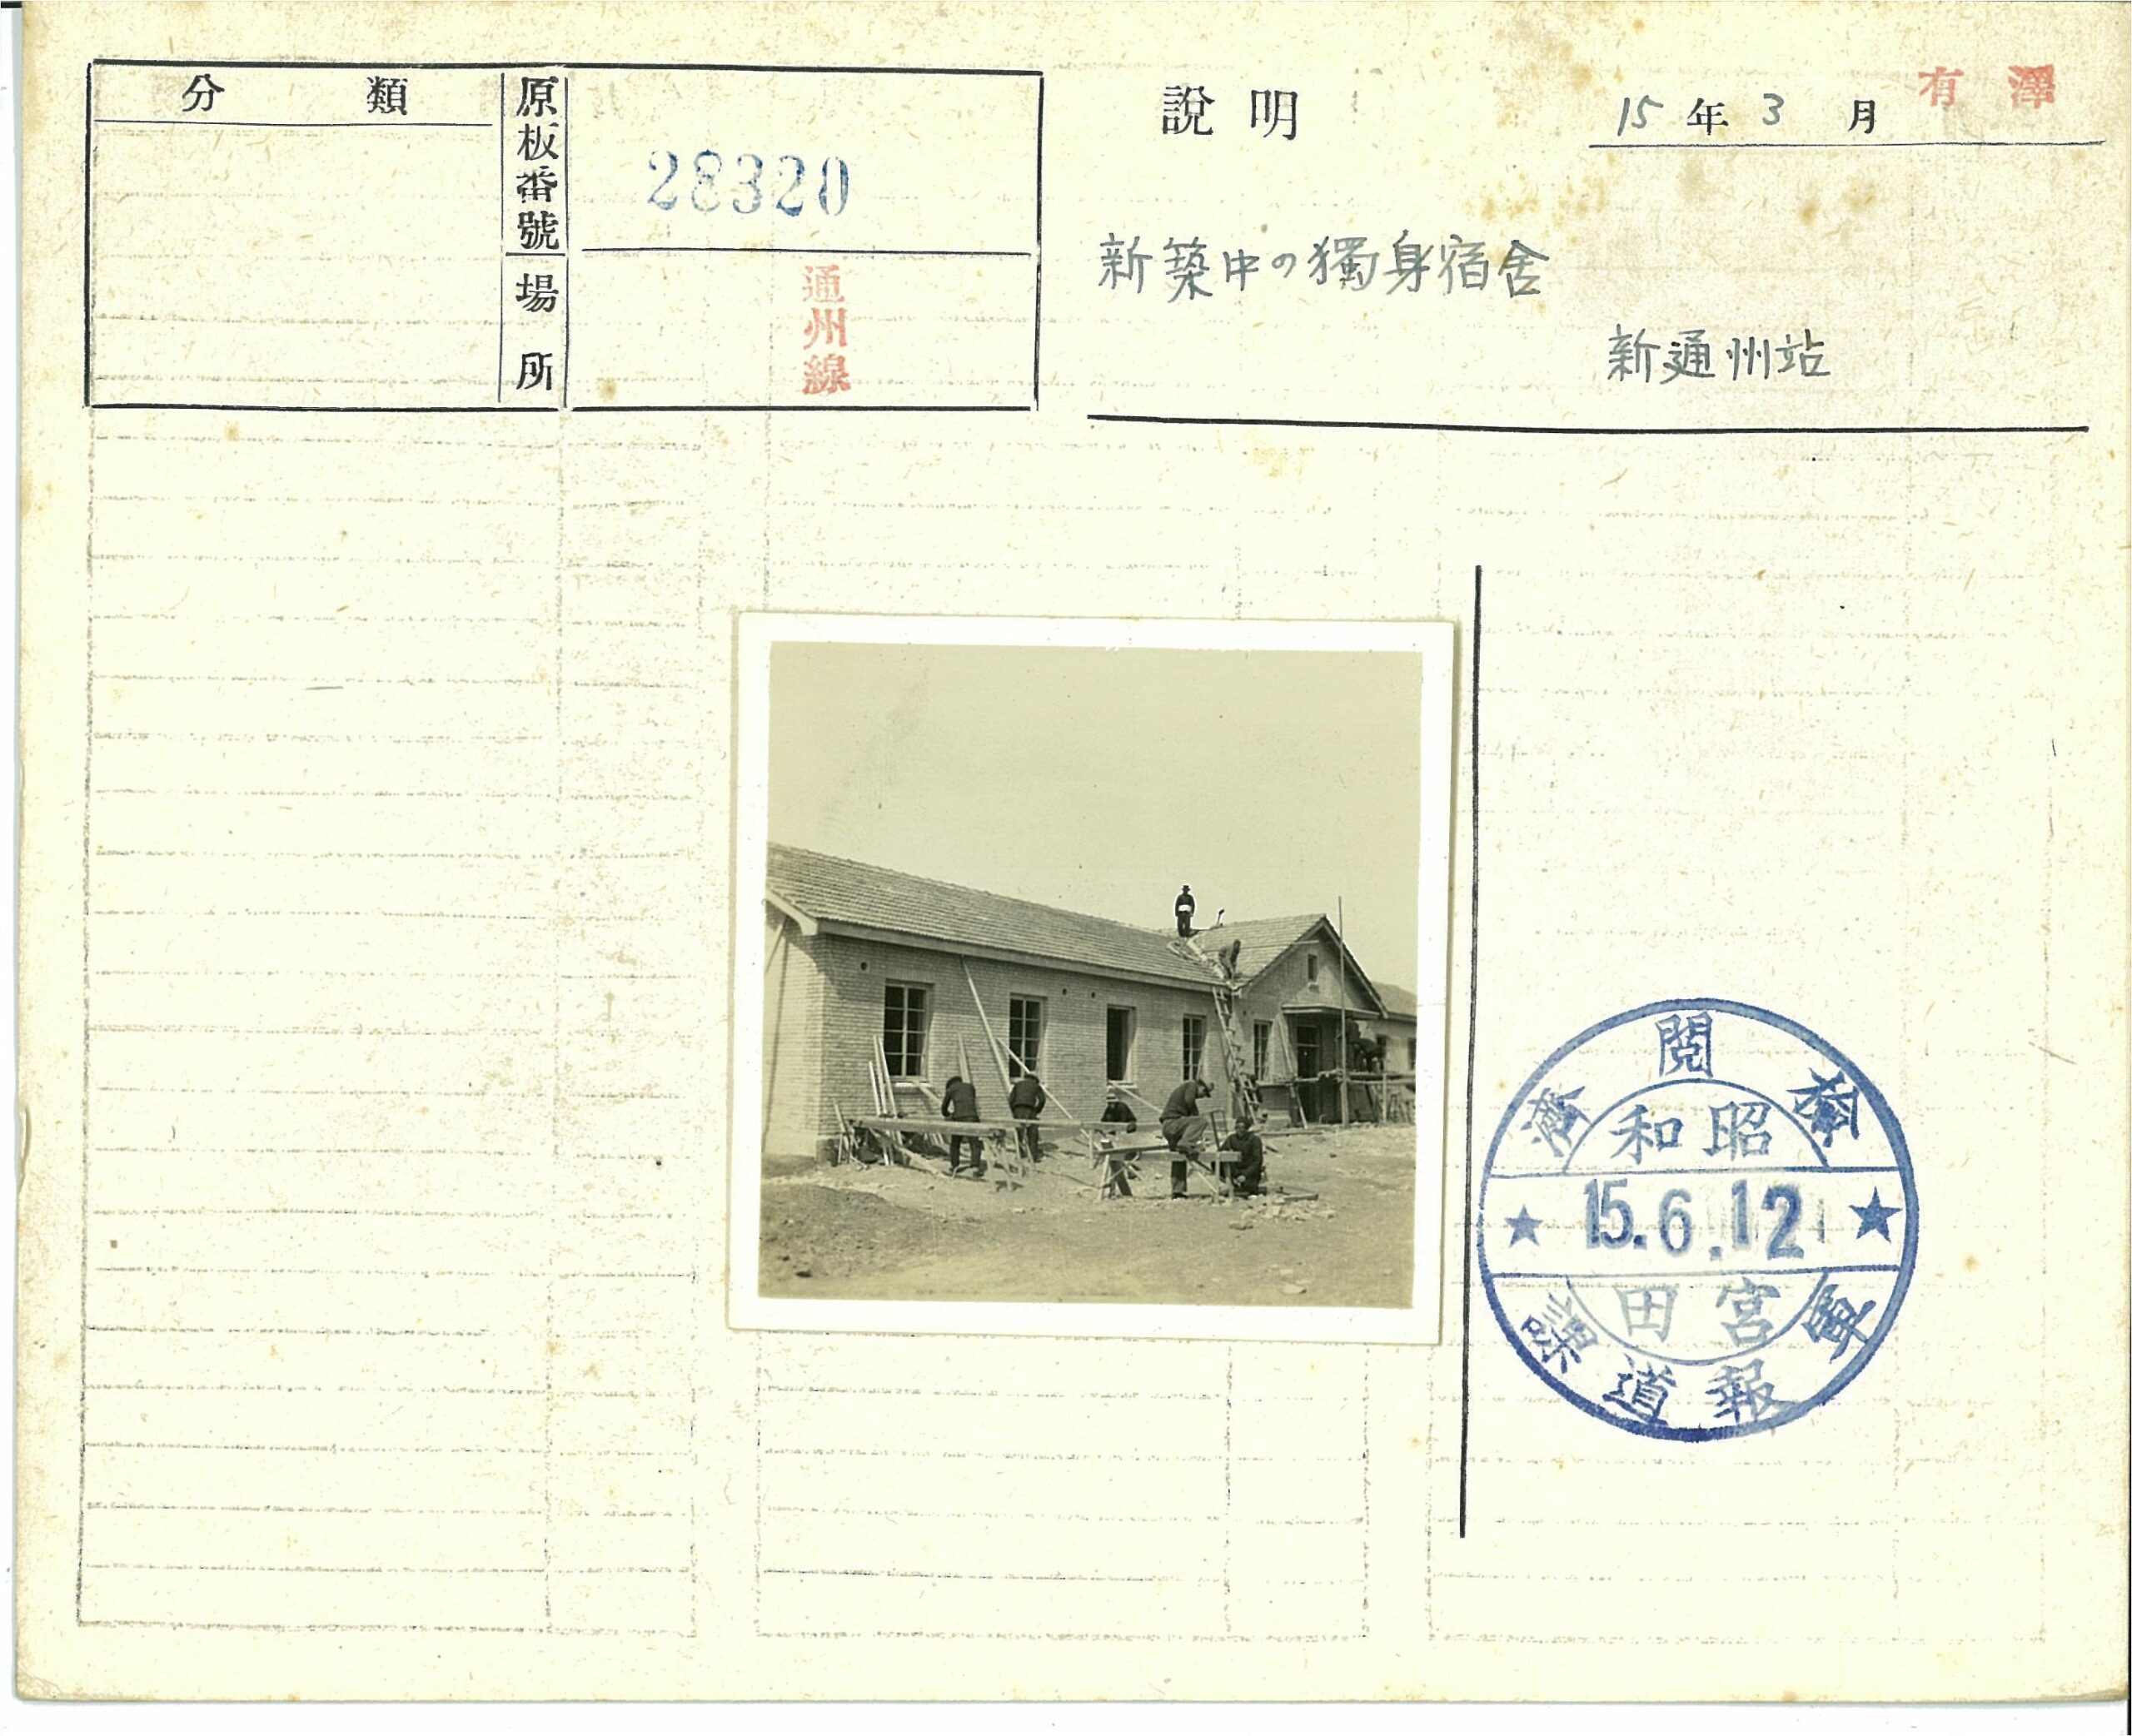 分類
原板番號
28320
場所
通州線
說明
15年3月
有澤
新築中の獨身宿舍
新通州站
檢閱濟
昭和
★15.6.12★
宮田
軍報道課